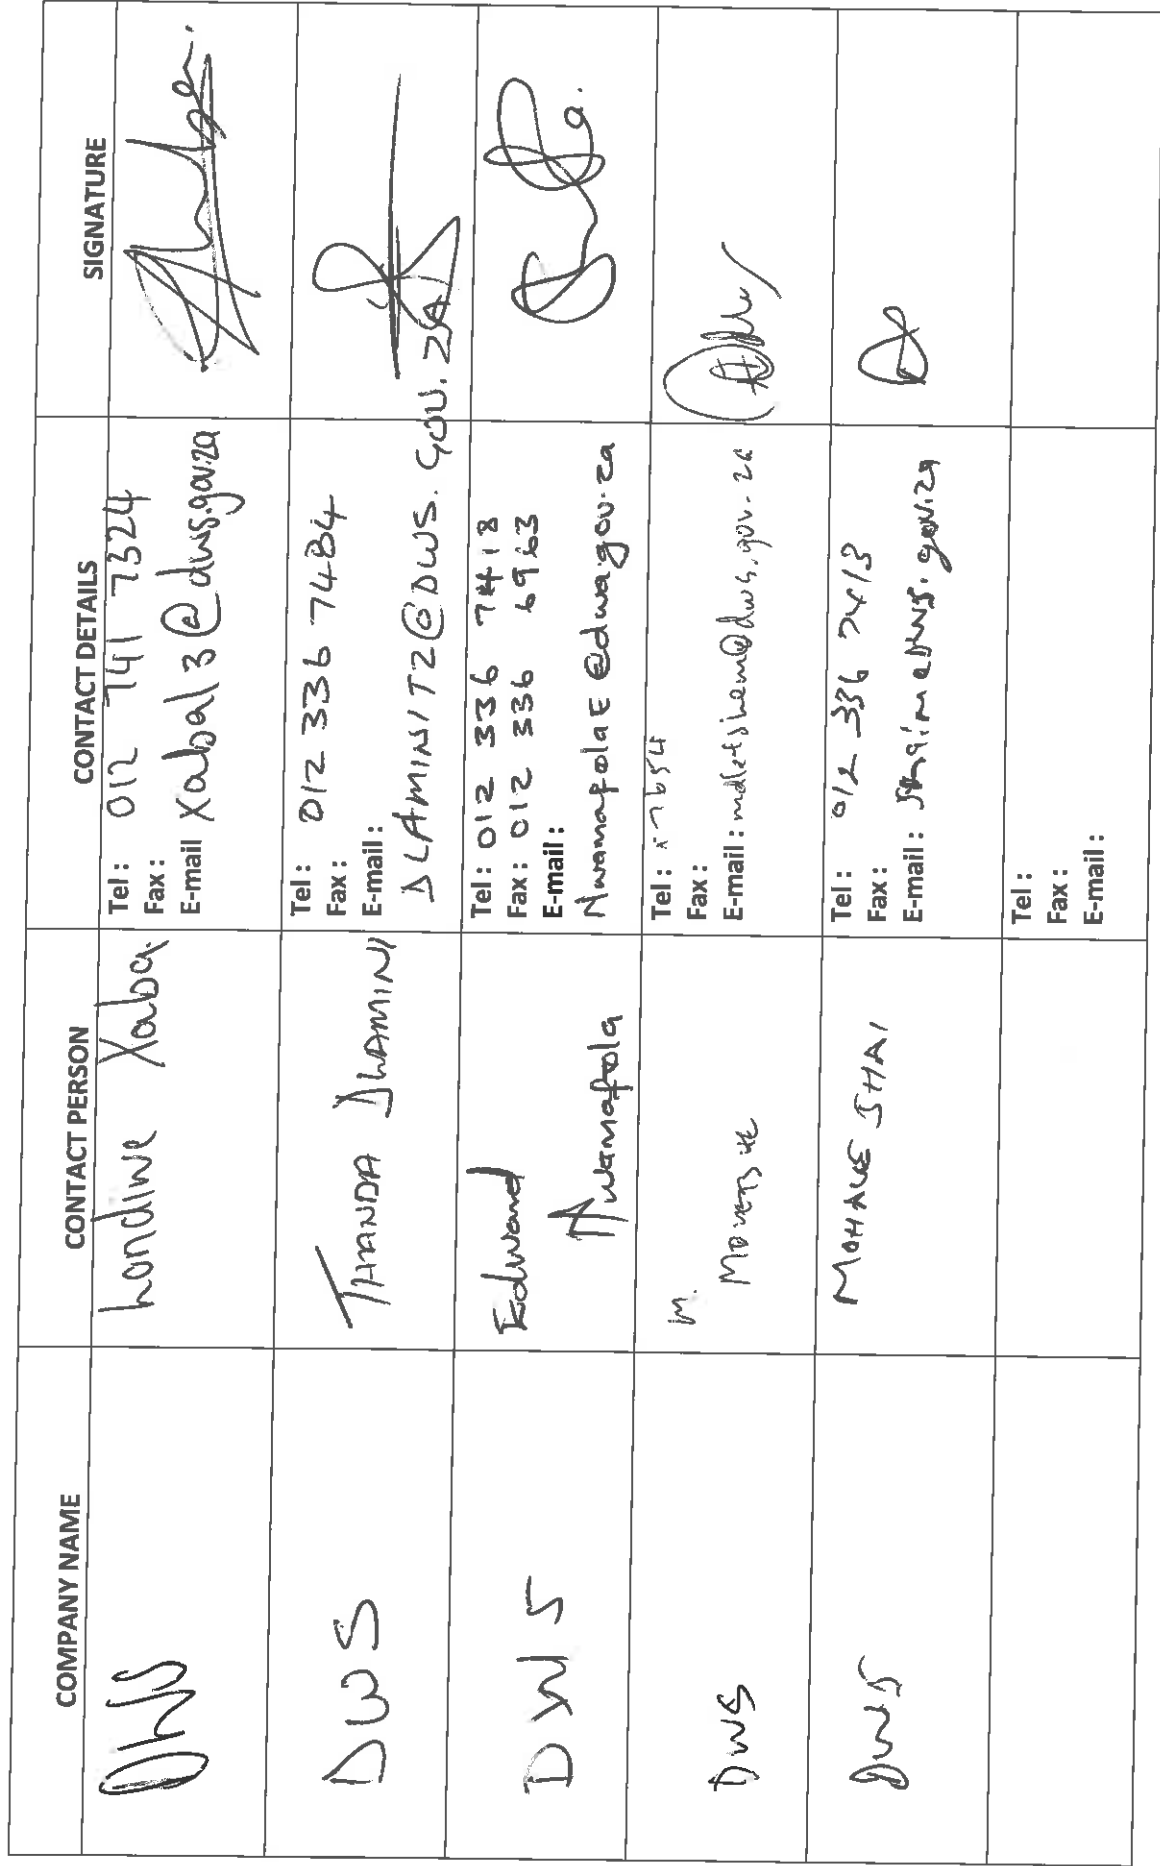 COMPANY NAME CONTACT PERSON CONTACT DETAILS SIGNATURE
DWS
Londiwe Xaba
Tel : 012 741 7324
Fax :
E-mail Xabal3@dws.gov.za
DWS
THANDA DLAMINI
Tel : 012 336 7484
Fax :
E-mail :
DLAMINITZ@DWS.GOV.ZA
DWS
Edward
Nwamafola
Tel : 012 336 7418
Fax : 012 336 6963
E-mail :
NwamafolaE@dwa.gov.za
DWS
M.
Tel :
Fax :
E-mail : mdletshem@dws.gov.za
DWS
MOHALE SHAI
Tel : 012 336 7413
Fax :
E-mail :
Tel :
Fax :
E-mail :